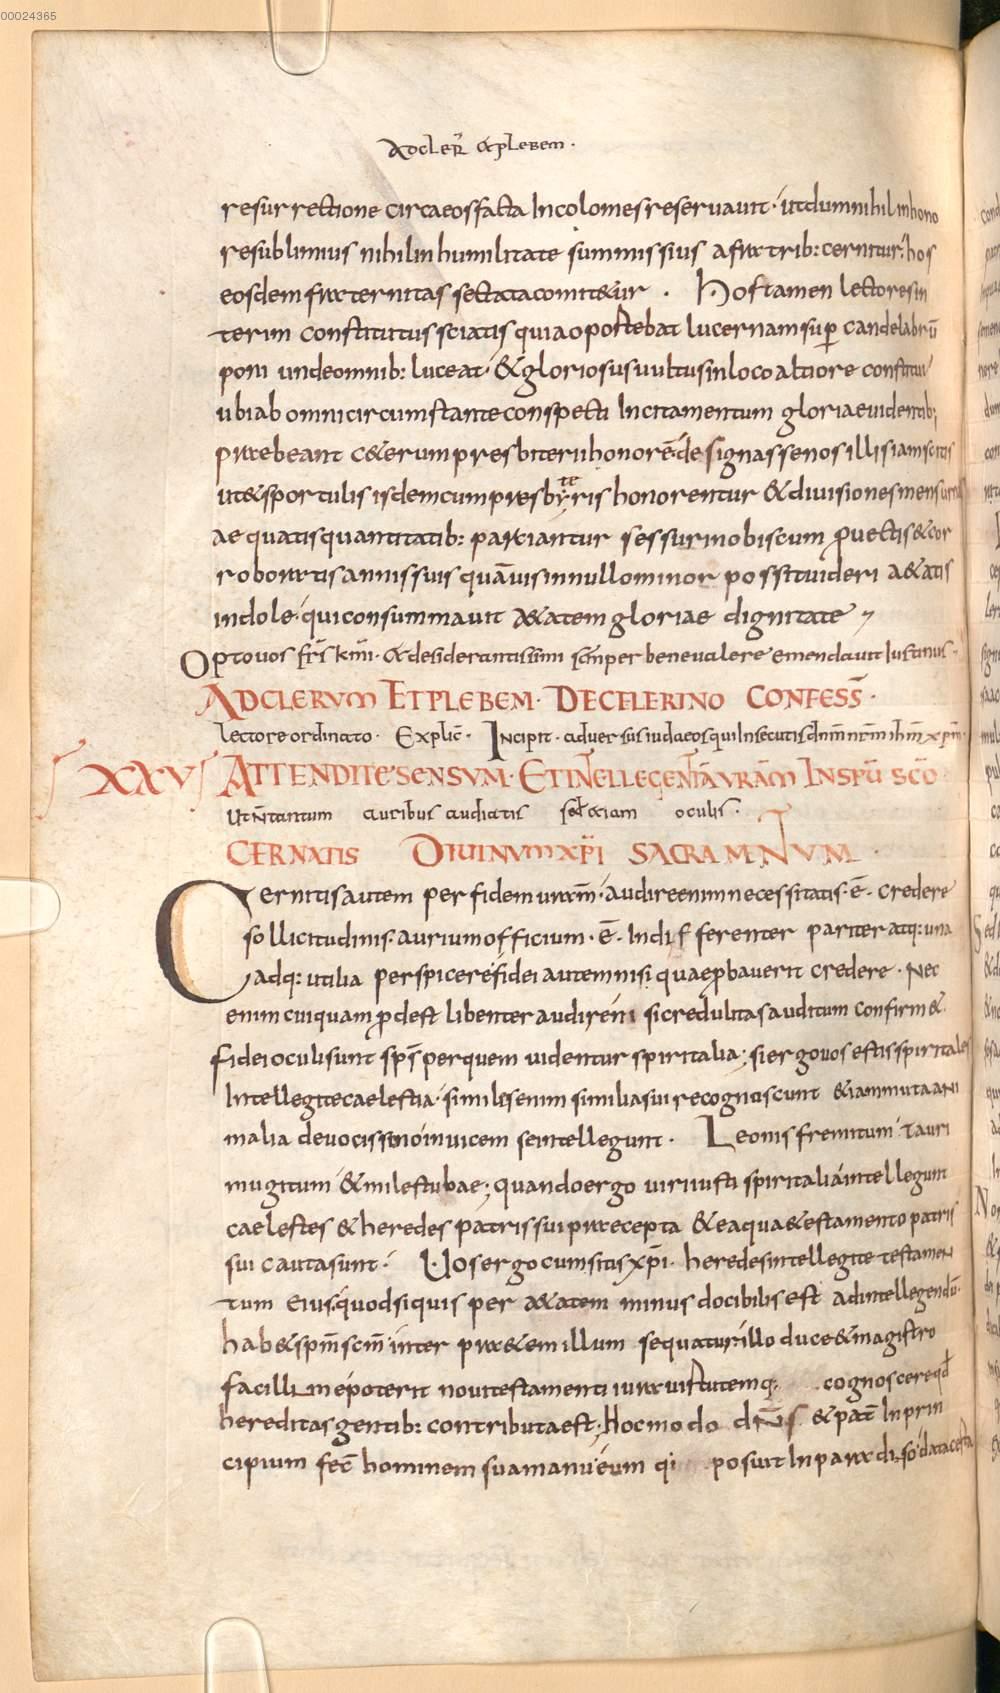 00024365
adcler̄ & plebem ·
resurrectione circa eos facta Incolomes reseruauit · ut dum nihil in hono
re sublimius nihil in humilitate summissius a fratrib: cernitur · hos
eosdem fraternitas sectata comit&ur · Hos tamen lectores in
terim constitutus sciatis quia oportebat lucernam sup̄ candelabrū
poni unde omnib: luceat · & gloriosus uultus in loco altiore constitui
ubi ab omni circumstante conspecti Incitamentum gloriae uidentib;
praebeant c&erum presbiterii honorē designasse nos illis iam scitis
ut & sportulis isdem cum presbyteris honorentur & diuisiones mensurnas
aequatis quantitatib: partiantur sessuri nobiscum ꝓuectis & cor
roboratis annis suis quāuis in nullo minor possit uideri a&atis
indole · qui consummauit a&atem gloriae dignitate
Opto uos fr̄s k̄mi · & desiderantissimi semper bene ualere emendauit Iustinus ·
AD CLERVM ET PLEBEM · DE CELERINO CONFESS̄ ·
lectore ordinato · Explic̄ · Incipit · aduersus iudaeos qui Insecuti s̄ dn̄m nr̄m ih̄m xp̄m ·
XXV ATTENDITE SENSVM · ET INTELLEGENTIAM VRAM IN SPŪ SC̄O
Ut n̄ tantum auribus audiatis sed &iam oculis ·
CERNATIS DIUINVM XP̄I SACRAMNTVM ·
Cernitis autem per fidem uram̄ · audire enim necessitatis · ē · credere
sollicitudinis · aurium officium · ē · Indifferenter pariter atq: una
adq: utilia perspicere fidei autem nisi quae ꝓbauerit credere · Nec
enim cuiquam ꝓdest libenter audire ni si credulitas auditum confirm&
fidei oculi sunt sp̄s per quem uidentur spiritalia ; si ergo uos estis spiritales
Intellegite caelestia · similes enim similia sui recogniscunt & iam muta ani
malia de uocis sono inuicem se intellegunt · Leonis fremitum · tauri
mugitum & milestubae ; quando ergo uiri iusti spiritalia intellegunt
caelestes & heredes patris sui praecepta & ea qua testamento patris
sui cauta sunt · Uos ergo cum sitis xp̄i · heredes intellegite testamen
tum eius · quod si quis per a&atem minus docibilis est ad intellegendū ·
hab& sp̄m sc̄m inter pra&em illum sequatur illo duce & magistro
facillime poterit noui testamenti iura uirtutemq; cognoscere qđ
hereditas gentib: contributa est · Hoc modo dn̄s & pat̄ In prin
cipium fec̄ hominem sua manu · eum qi posuit In paradiso data certa